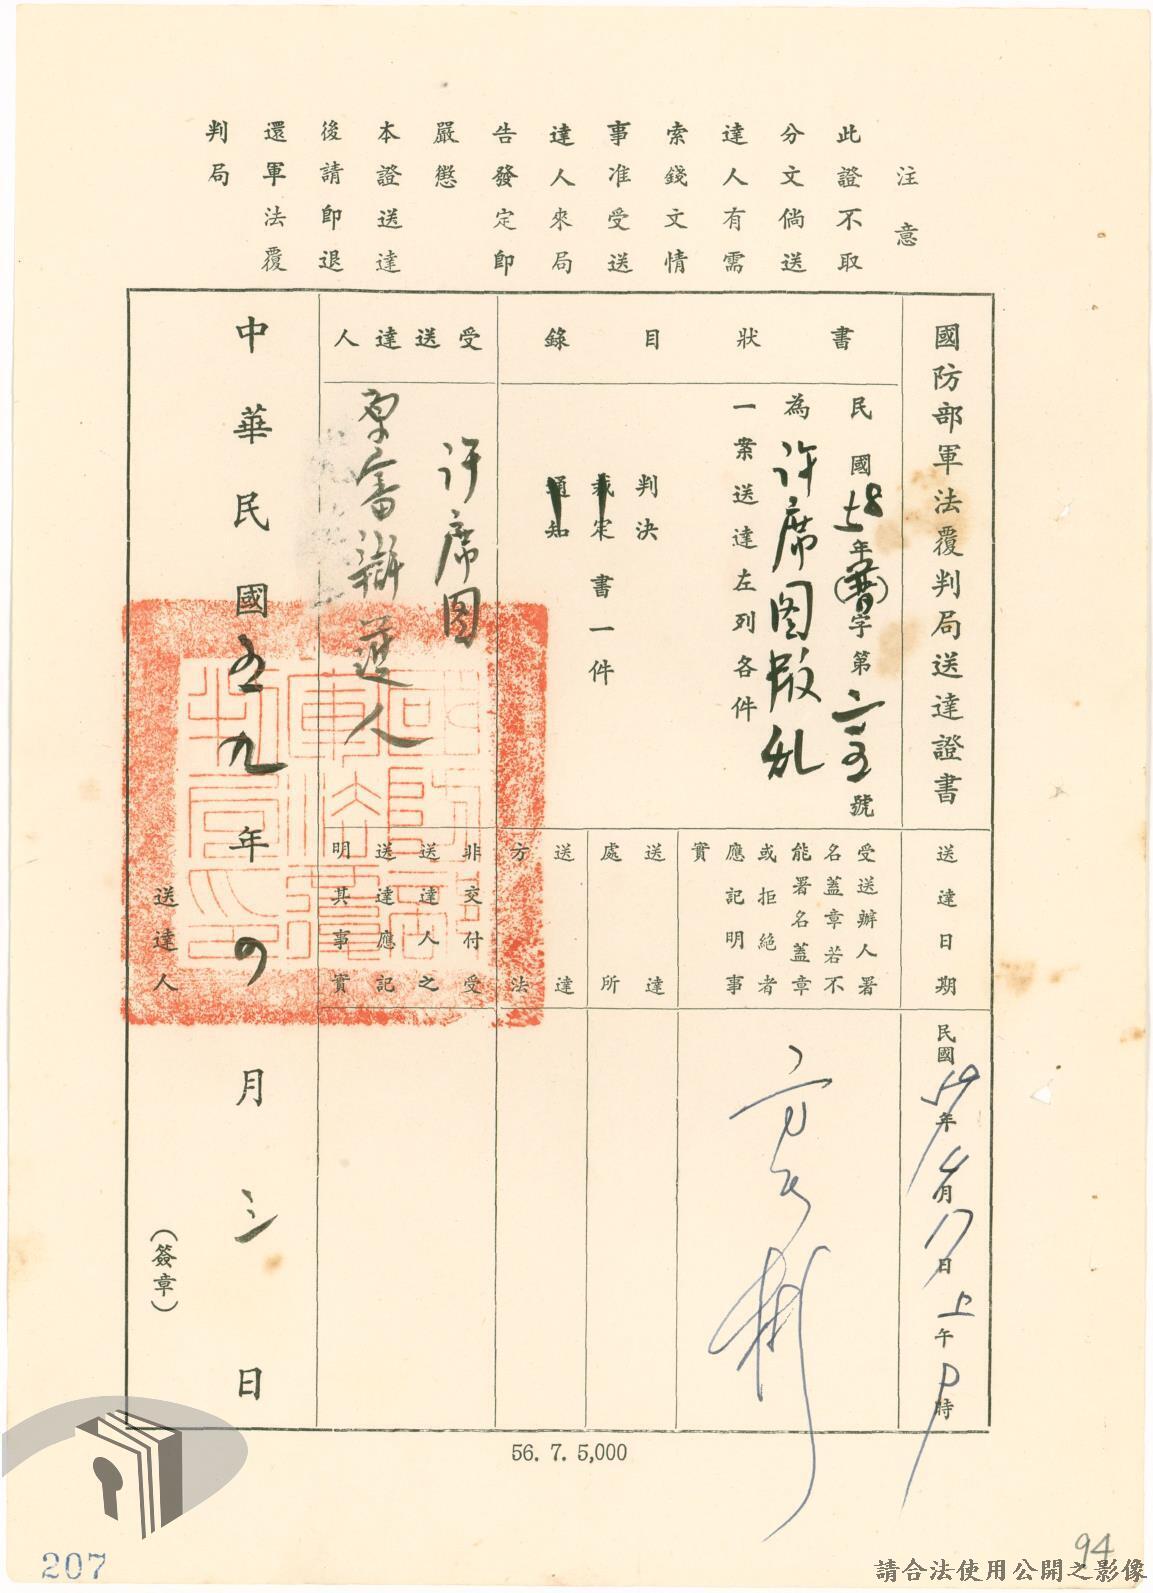 注意
此證不取
分文倘送
達人有需
索錢文情
事准受送
達人來局
告發定即
嚴懲
本證送達
後請即退
還軍法覆
判局
國防部軍法覆判局送達證書
書狀目錄
民國58年(普)字第號
為許席图叛乱
一案送達左列各件
判決
裁定書一件
通知
受送達人
许席图
原審辯護人
中華民國五九年四月三日
送達日期
民國59年4月17日上午時
受送辦人署
名蓋章若不
能署名蓋章
或拒絕者
應記明事
實
送達處所
送達方法
非交付受
送達人之
送達應記
明其事實
送達人
(簽章)
56. 7. 5,000
207
94
請合法使用公開之影像